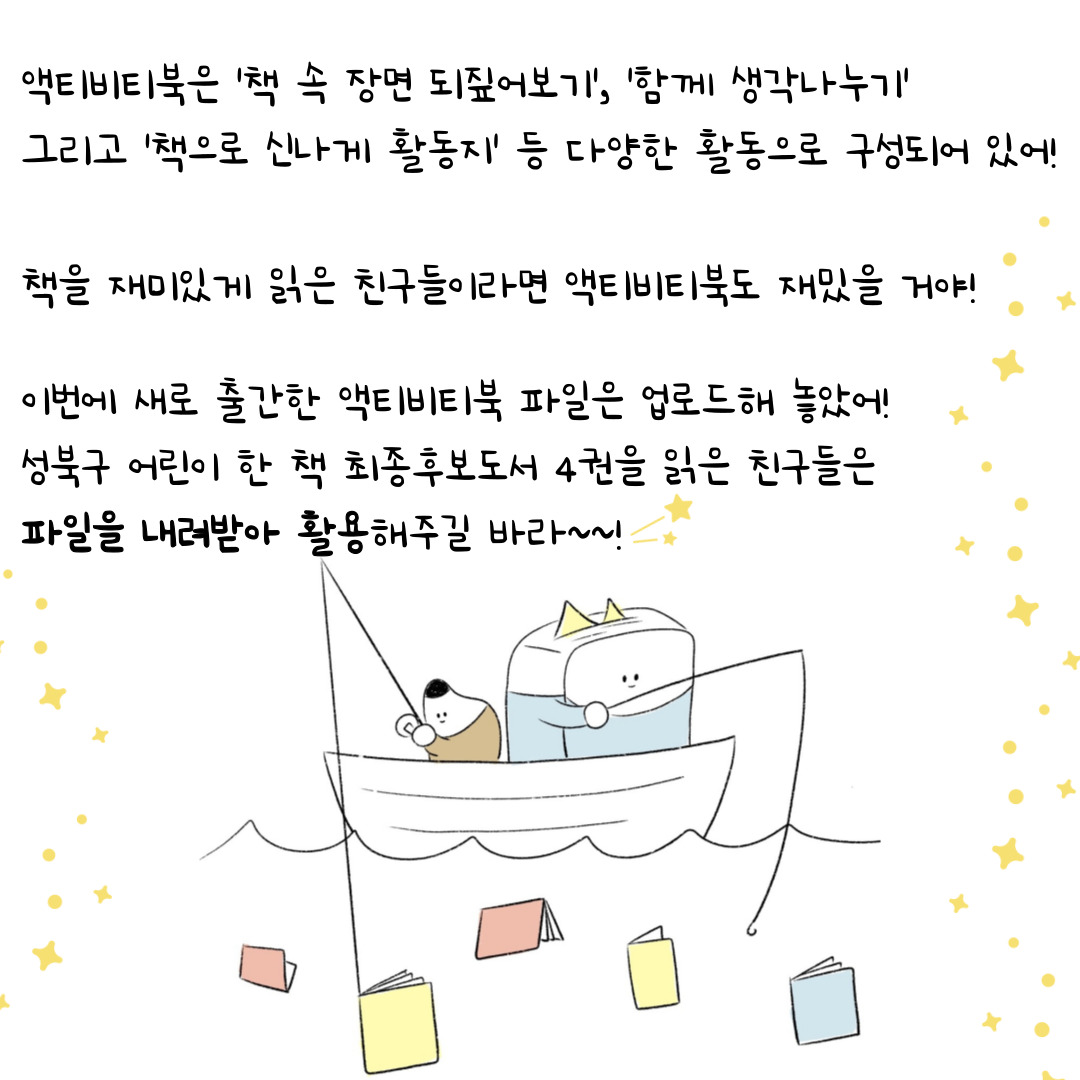 액티비티북은 '책 속 장면 되짚어보기', '함께 생각나누기'
그리고 '책으로 신나게 활동지' 등 다양한 활동으로 구성되어 있어!
책을 재미있게 읽은 친구들이라면 액티비티북도 재밌을 거야!
이번에 새로 출간한 액티비티북 파일은 업로드해 놓았어!
성북구 어린이 한 책 최종후보도서 4권을 읽은 친구들은
파일을 내려받아 활용해주길 바라~~!